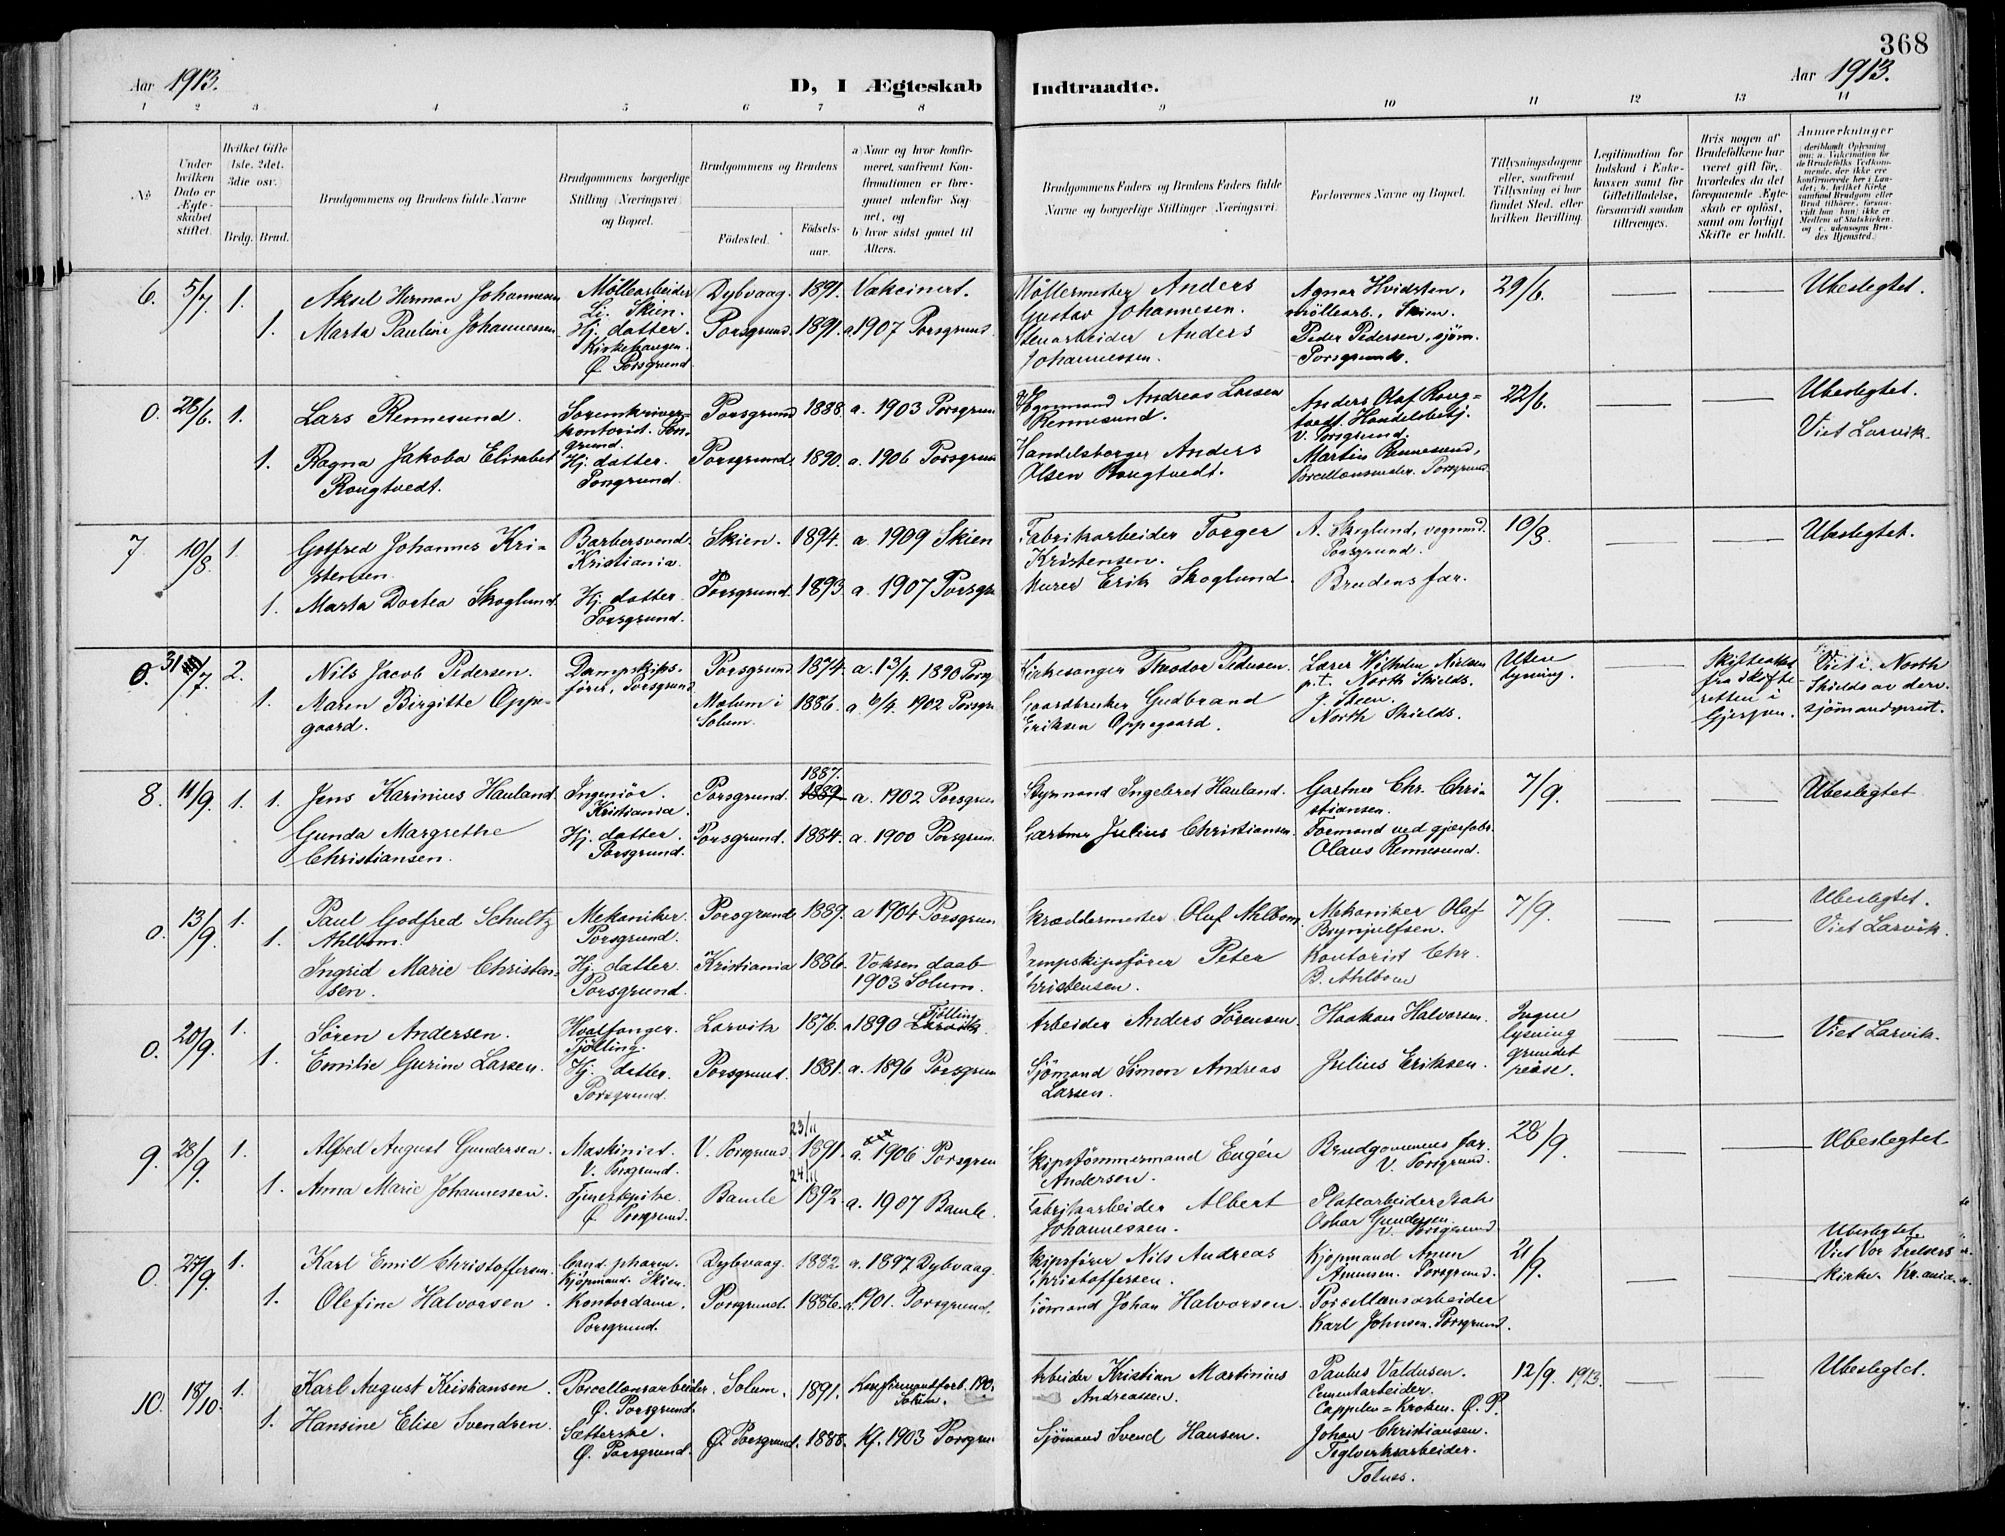 368
Aar 1913.
D, I Ægteskab Indtraadte.
Aar 1913.
1 2 3 4 5 6 7 8 9 10 11 12 13 14
No
Under hvilken Dato er Ægteskabet stiftet.
Hvilket Gifte (1ste, 2det, 3die osv.)
Brdg. Brud.
Brudgommens og Brudens fulde Navne
Brudgommens borgerlige Stilling (Næringsvei) og Bopæl.
Brudgommens og Brudens
Fødested. Fødselsaar.
a) Naar og hvor konfirmeret, saafremt Konfirmationen er foregaaet udenfor Sognet, og
b) hvor sidst gaaet til Alters.
Brudgommens Faders og Brudens Faders fulde Navne og borgerlige Stillinger (Næringsvei)
Forlovernes Navne og Bopæl.
Tillysningsdagene eller, saafremt Tillysning ei har fundet Sted, efter hvilken Bevilling.
Legitimation for Indskud i Enkekassen samt for Giftetilladelse, forsaavidt saadan tiltrænges.
Hvis nogen af Brudefolkene har været gift før, hvorledes da det foregaaende Ægteskab er opløst, samt om lovligt Skifte er holdt.
Anmerkninger
6. 5/7. 1. Aksel Herman Johannesen Möllearbeider Li. Skien. Dybvaag. 1891. Vakcinert. Möllermester Anders Gustav Johannesen. Agnar Hvidsten, möllearb., Skien. 29/6. Ubeslegtet.
1. Marta Pauline Johannessen Hj. datter. Kirkehaugen. Ø. Porsgrund Porsgrund. 1891. a. 1907 Porsgrund Stenarbeider Anders Johannessen. Peder Pedersen, sjöm. Porsgrund.
0. 28/6. 1. Lars Rennesund. Sorenskriverkontorist. Porsgrund. Porsgrund 1888. a. 1903 Porsgrun Andreas Larsen Rennesund. Anders Olaf Rougtvedt. Handelsbetj. V. Porsgrund 22/6. Ubeslegtet. Viet Larvik.
1. Ragna Jakoba Elisabet Rougtvedt. Hj. datter. Porsgrund. Porsgrund. 1890. a. 1906 Porsgrun Handelsborger Anders Olsen Rougtvedt. Martin Rennesund, Porcellænsmaler. Porsgrund
7. 10/8. 1. Gotfred Johannes Kristensen. Barbersvend Kristiania. Skien. 1894. a 1909 Skien Fabrikarbeider Torger Kristensen. A. Skoglund, vognmd. Porsgrund. 10/8. Ubeslegtet.
1. Marta Dortea Skoglund. Hj. datter. Porsgrund. Porsgrund. 1893. a. 1907 Porsgr Murer Erik Skoglund. Brudens far.
0. 31/7. 2. Nils Jacob Pedersen. Dampskibsförer, Porsgrund Porsgrund 1874. a. 13/4. 1890 Porsg Kirkesanger Theodor Pedersen. Lærer Wilhelm Nielsen p.t. North Shields. Uten lysning. Skifteattest fra skifteretten i Gjerpen. Viet i North Shields av derv. sjömandsprest.
1. Maren Birgitte Oppegaard. Melum i Solum. 1886. a. 6/4. 1902 Porsgr Gaardbruker Gudbrand Eriksen Oppegaard. J. Steen. North Shields.
8. 11/9. 1. 1. Jens Karinius Hauland Ingeniör. Kristiania Porsgrund. 1887. 1889 a. 1902 Porsgrun Styrmand Ingebret Hauland. Gartner Chr. Christiansen. 7/9. Ubeslegtet
Gunda Margrethe Christiansen. Hj. datter. Porsgrund. Porsgrund. 1884. a. 1900 Porsgrun Gartner Julius Christiansen. Formand ved gjærfabr. Olaus Rennesund.
0. 13/9. 1. Paul Godfred Schultz Ahlbom. Mekaniker. Porsgrund. Porsgrund 1889. a 1904 Porsgrun Skræddermester Oluf Ahlbom. Mekaniker Olaf Brynjulfsen. 7/9. Ubeslegtet. Viet Larvik.
1. Ingrid Marie Christensen. Hj. datter. Porsgrund. Kristiania 1886. Voksen daab 1903 Solum. Dampskipsförer Peter Christensen. Kontorist Chr. B. Ahlbom
0. 20/9. 1. Sören Andersen. Hvalfanger. Tjölling. Larvik 1876. a 1890 Larvik Tjölling. Arbeider Anders Sörensen. Haakon Halvorsen. Ingen lysning grundet reise. Viet Larvik.
1. Emilie Gurine Larsen. Hj. datter. Porsgrund. Porsgrund. 1881. a. 1896 Porsgrun Sjömand Simon Andreas Larsen. Julius Eriksen.
9. 28/9. 1. Alfred August Gundersen. Maskinist. V. Porsgrund. V. Porsgrund 23/11 1891. a. 1906 Porsgrun Skipstömmermand Eugén Andersen. Brudgommens far. V. Porsgrund. 28/9. Ubeslegtet
1. Anna Marie Johannessen. Tjenerskpike. Ø. Porsgrund. Bamle 24/11 1892. a. 1907 Bamle. Fabrikarbeider Albert Johannessen. Platearbeider Isak Oskar Gundersen. V. Porsgrund
0. 27/9. 1. Karl Emil Christoffersen Cand. pharm. Kjöpmand. Skien. Dybvaag. 1882. a. 1897 Dybvaag. Skipsförer Nils Andreas Christoffersen. Kjöpmand Anun Amunsen. Porsgrund. 21/9. Ubeslegtet Viet Vor Frelsers kirke. Kr.ania.
1. Olefine Halvorsen. Kontordame. Porsgrund. Porsgrund. 1886. a. 1901. Porsgrund. Sjömand Johan Halvorsen. Porcellænsarbeider Karl Johnsen. Porsgrund.
10. 18/10. 1. Karl August Kristiansen. Porcellænsarbeider. Ø. Porsgrund. Solum. 1891. Arbeider Kristian Martinius Andreassen. Paulus Valdusen. Cementarbeider. Cappelen = Kroken. Ø. P. 12/9. 1913. Ubeslegtet.
1. Hansine Elise Svendsen. Sætterske. Ø. Porsgrund. Ø. Porsgrund. 1888. Kf. 1903 Porsgrun Sjömand Svend Hansen. Johan Christiansen. Teglverksarbeider. Tolnes.